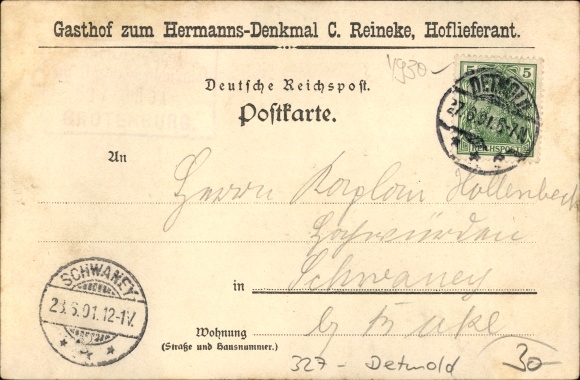 Gasthof zum Hermanns-Denkmal C. Reineke, Hoflieferant.
Deutsche Reichspost.
Postkarte.
4930
5 5
REICHSPOST
DETMOLD
6.01.6-7N.
An
Herrn Kaplan Hollenbeck
Hochwürden
in Schwaney
by Buke
Wohnung
(Straße und Hausnummer.)
SCHWANEY
23.6.01.12-1V.
327 - Detmold
30